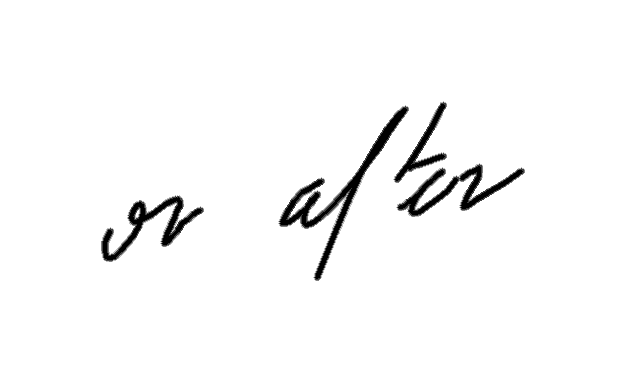 or after